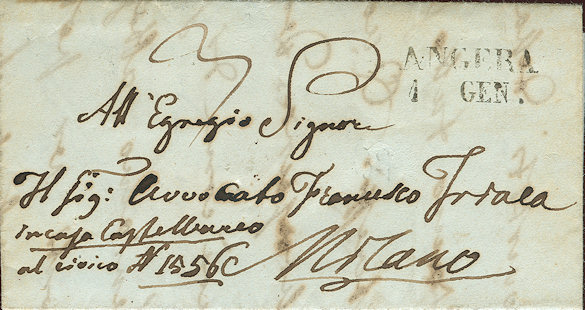 ANGERA
1 GEN.
3
All' Egregio Signore
Il Sig: Avvocato Francesco
in casa Castelbarco
al civico N 1556
Milano